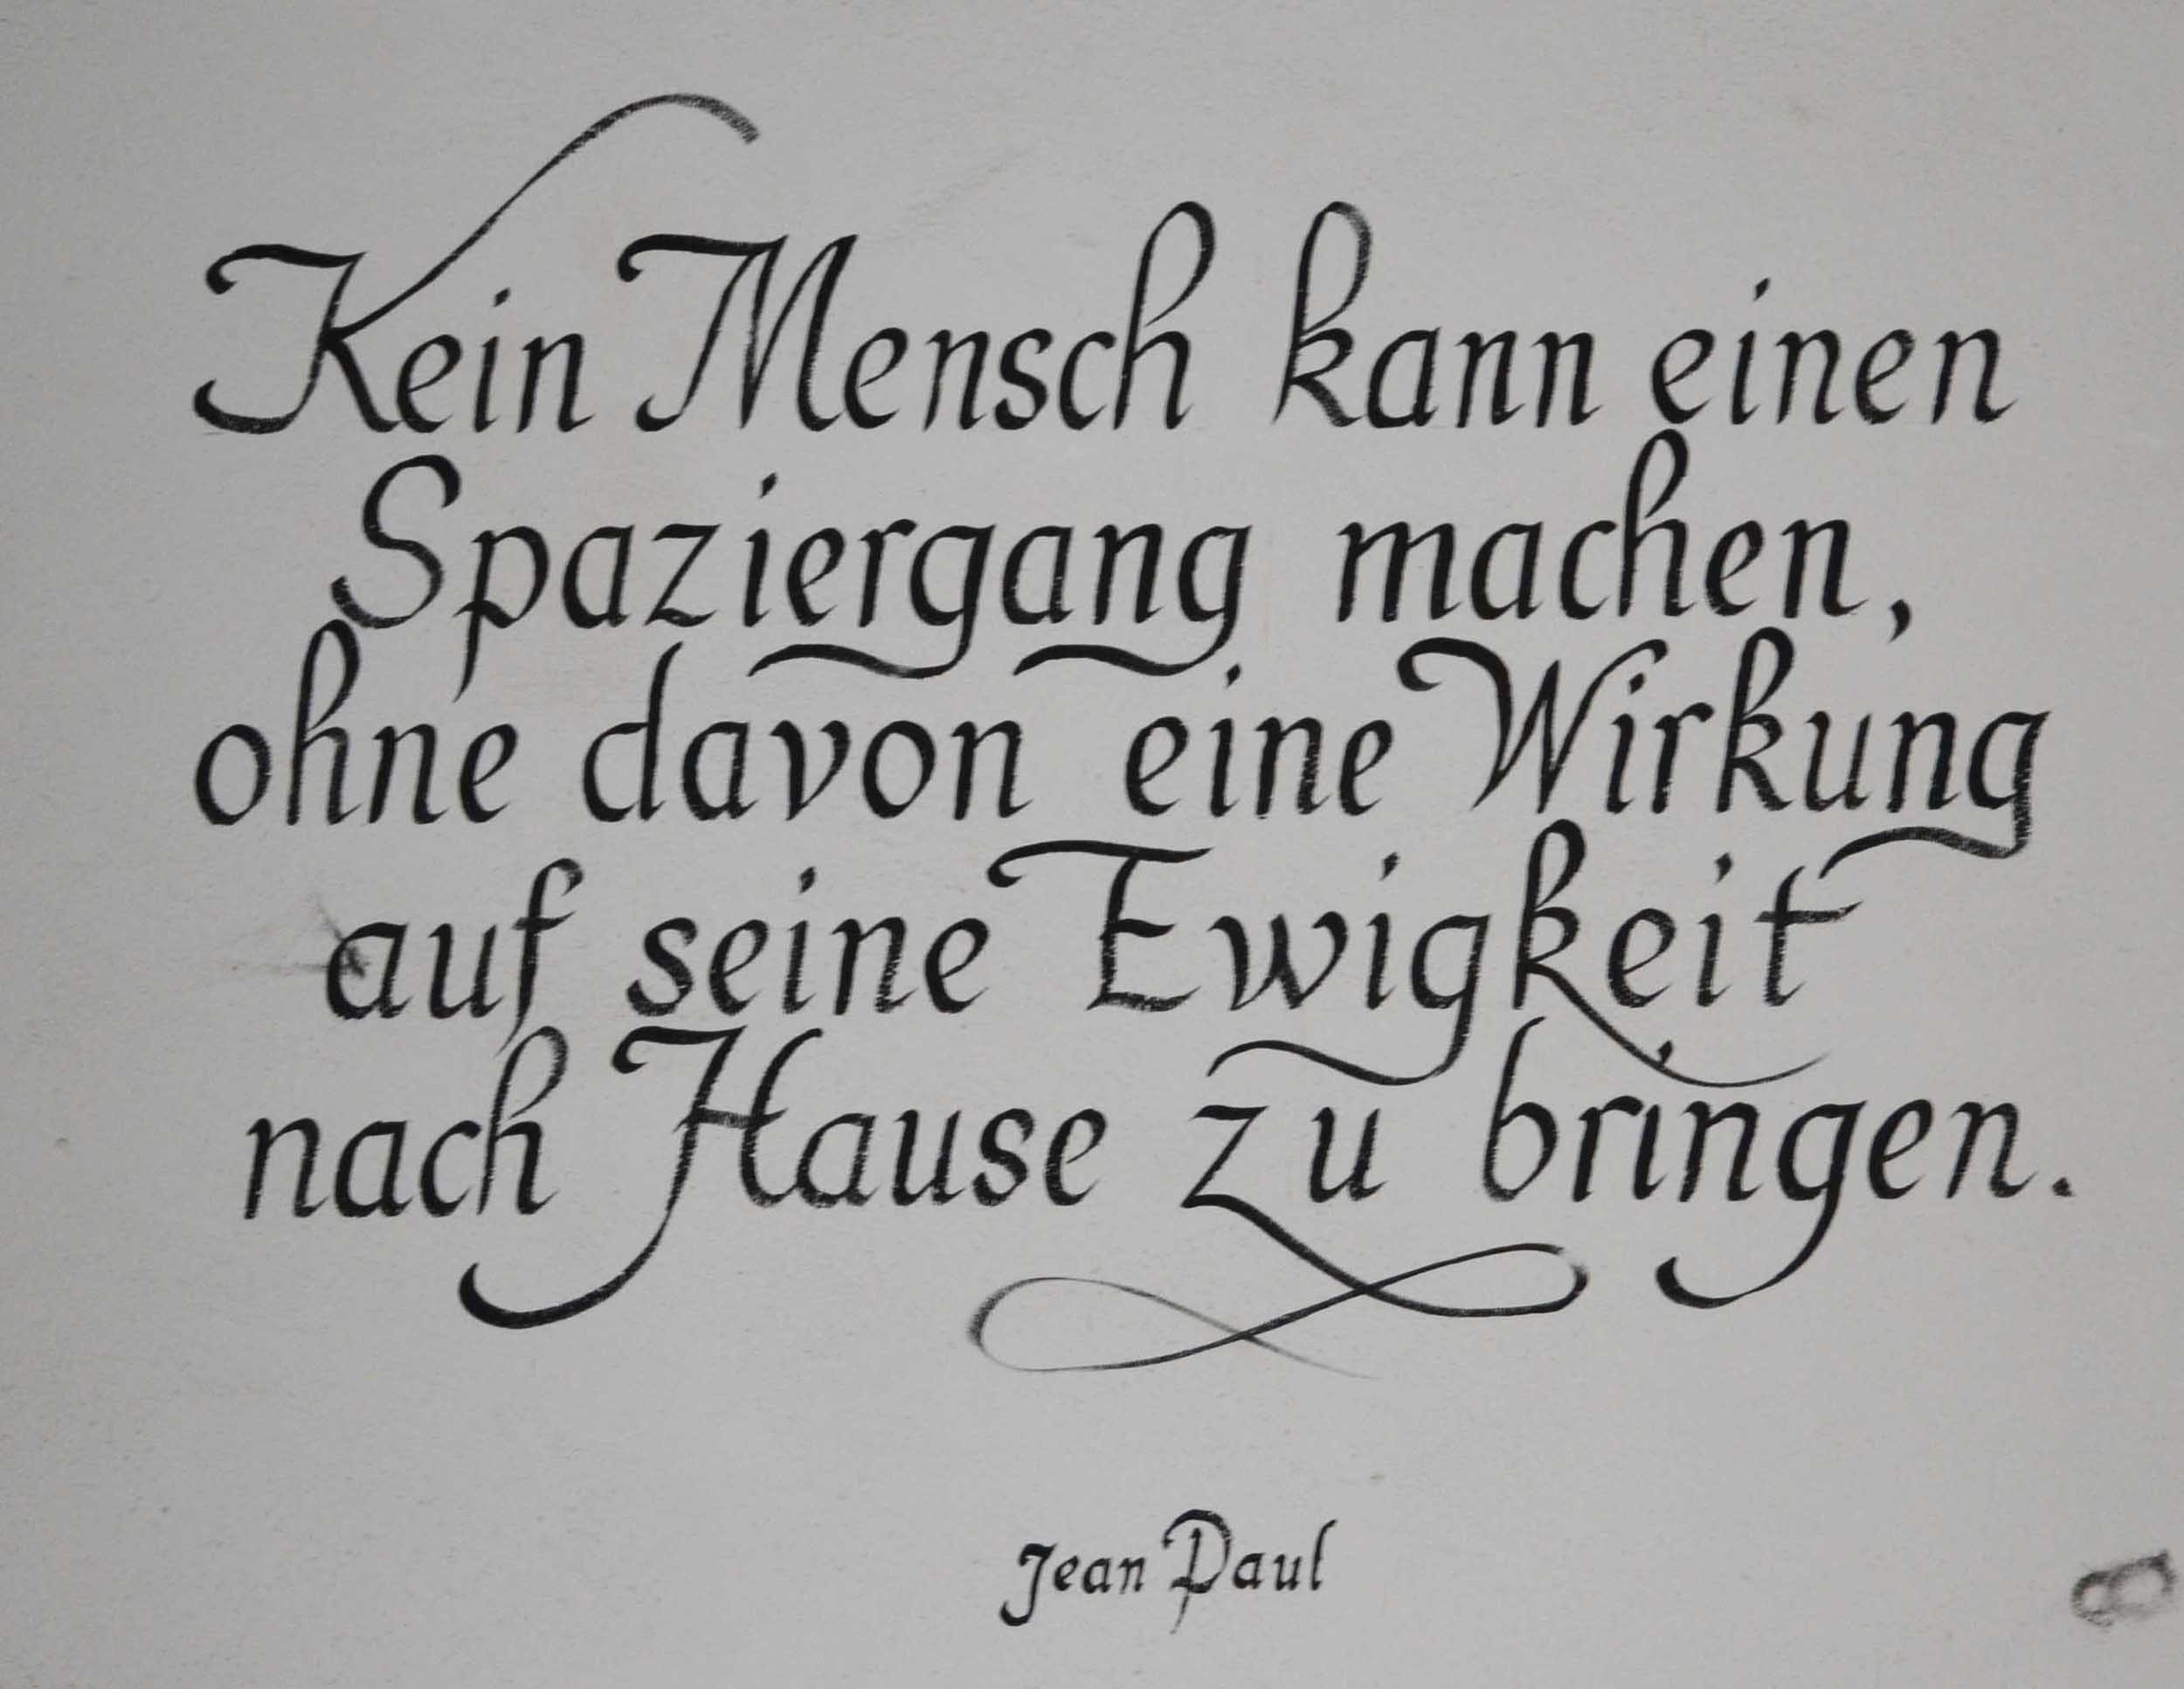 Kein Mensch kann einen
Spaziergang machen,
ohne davon eine Wirkung
auf seine Ewigkeit
nach Hause zu bringen.
Jean Paul